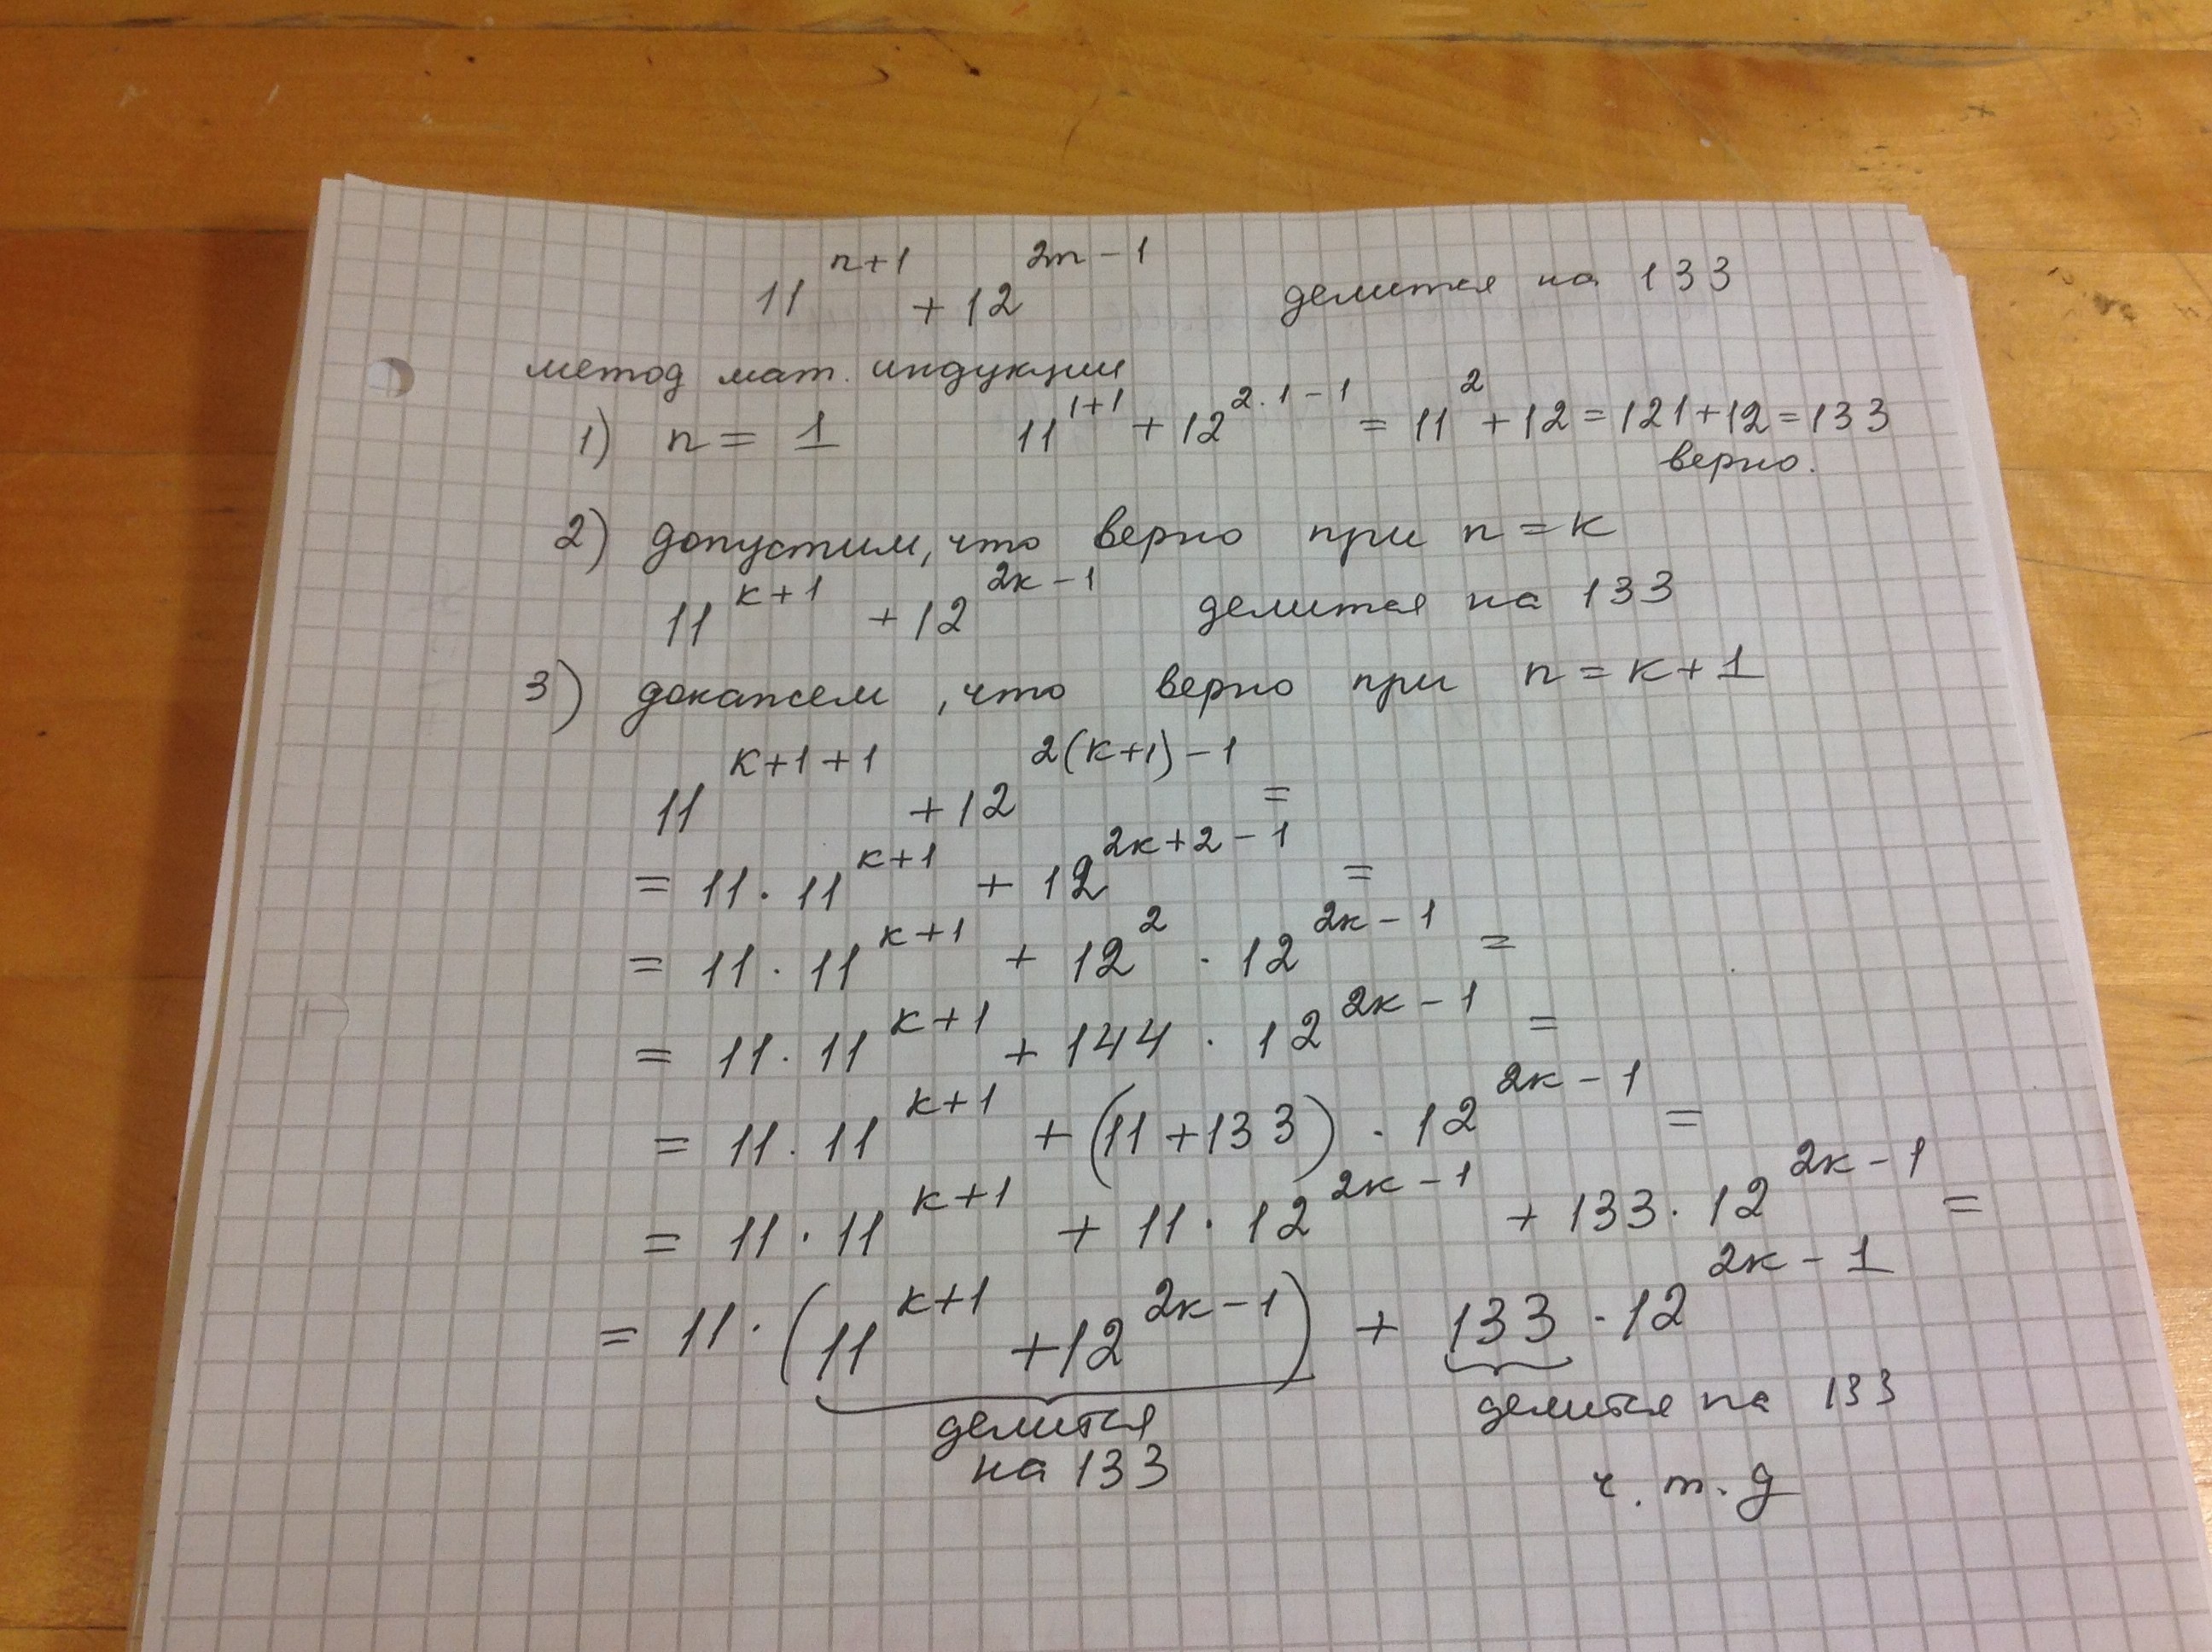 11^{n+1} + 12^{2n-1} делится на 133
метод мат. индукции
1) n = 1 11^{1+1} + 12^{2·1-1} = 11^2 + 12 = 121 + 12 = 133
верно.
2) допустим, что верно при n = k
11^{k+1} + 12^{2k-1} делится на 133
3) докажем, что верно при n = k+1
11^{k+1+1} + 12^{2(k+1)-1} =
= 11 · 11^{k+1} + 12^{2k+2-1} =
= 11 · 11^{k+1} + 12^2 · 12^{2k-1} =
= 11 · 11^{k+1} + 144 · 12^{2k-1} =
= 11 · 11^{k+1} + (11+133) · 12^{2k-1} =
= 11 · 11^{k+1} + 11 · 12^{2k-1} + 133 · 12^{2k-1} =
= 11 · (11^{k+1} + 12^{2k-1}) + 133 · 12^{2k-1}
делится на 133
делится на 133
ч. т. д